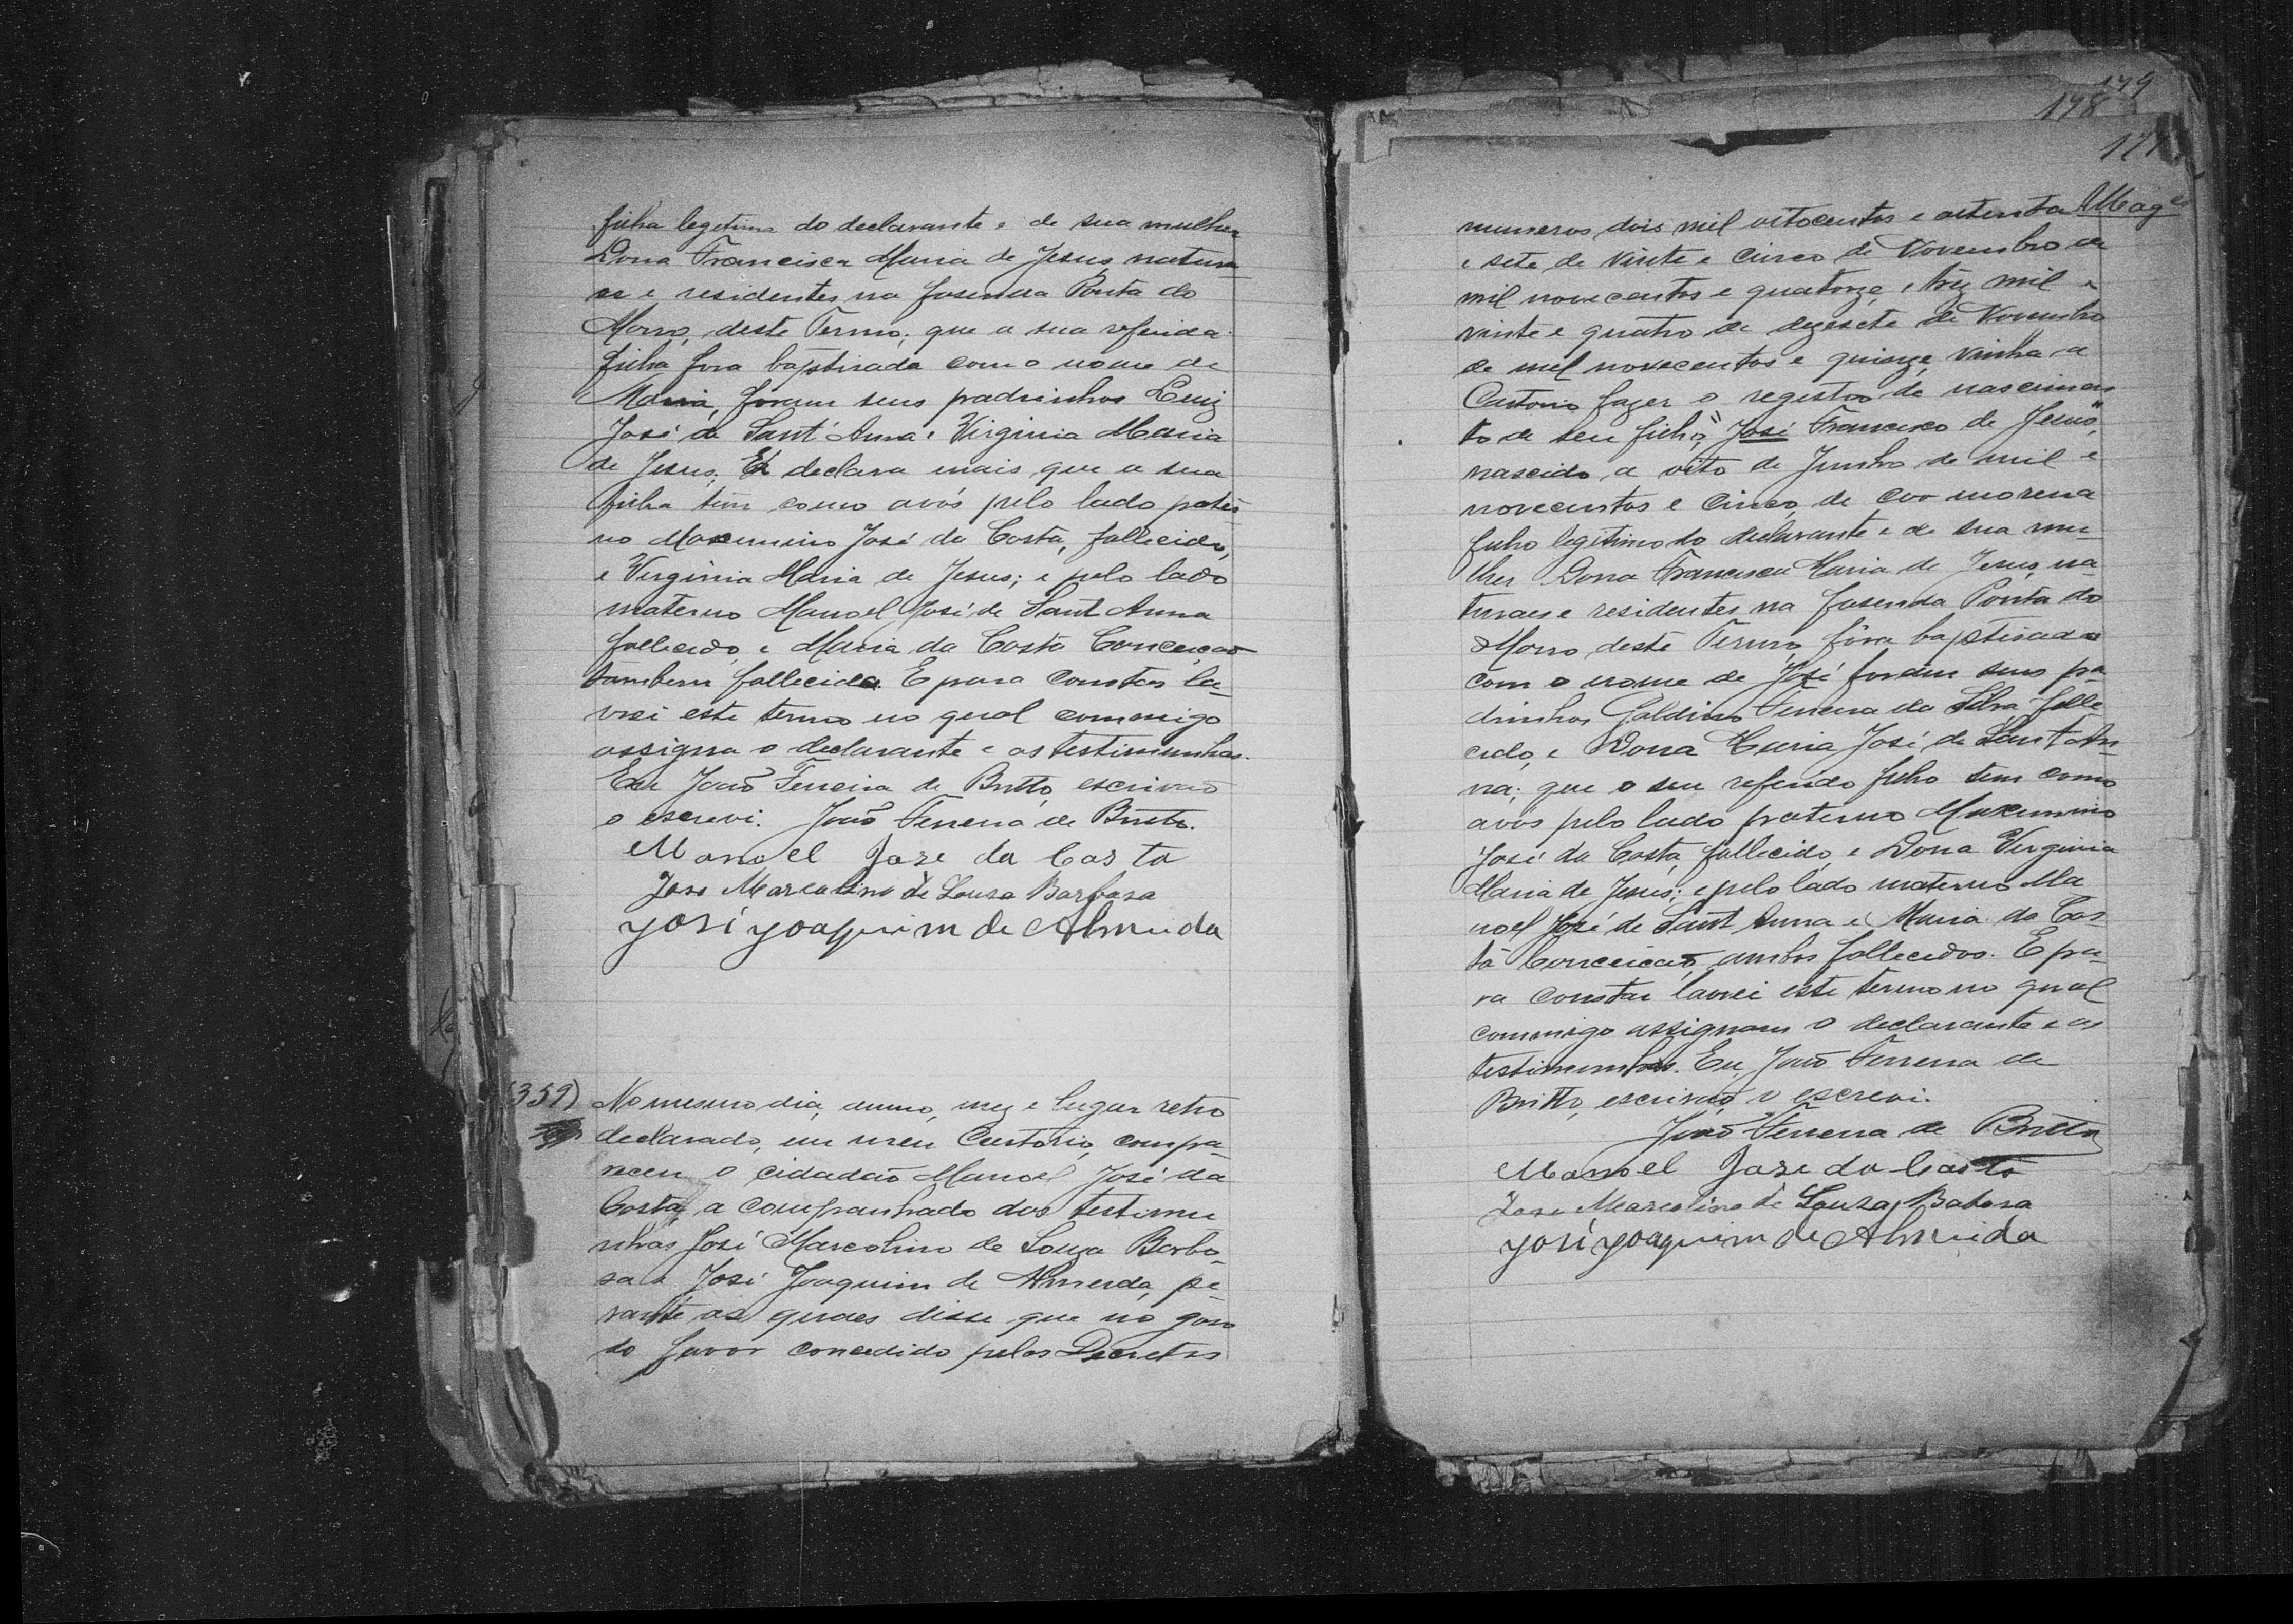 filha legitima do declarante e de sua mulher
Dona Francisca Maria de Jesus natura
es e residentes na fasenda Ponta do
Morro, deste Termo; que a sua referida
filha fora baptisada com o nome de
Maria, foram seus padrinhos Luiz
José de Sant'Anna e Virginia Maria
de Jesus. E declara mais que a sua
filha tem como avós pelo lado pater
no Maxemino José da Costa, fallecido,
e Virginia Maria de Jesus; e pelo lado
materno Manoel José de Sant Anna
fallecido, e Maria da Costa Conceição
tambem fallecida. E para constar la-
vrei este termo no qual commigo
assigna o declarante e as testimunhas.
Eu João Ferreira de Britto, escrivão
o escrevi. João Ferreira de Britto.
Manoel Joze da Costa
Jose Marcolino de Souza Barbosa
José Joaquim de Almeida
(359) No mesmo dia, anno, mez e lugar retro
declarado, em meu Cartorio, compa-
receu o cidadão Manoel José da
Costa, a companhado das testimu
nhas José Marcolino de Souza Barbo-
sa e José Joaquim de Almeida, pe-
rante as quaes disse que no goso
do favor concedido pelos Decretos
179
178
177
numeros dois mil oitocentos e oitenta
e sete de vinte e cinco de Novembro de
mil novecentos e quatorze, e trez mil e
vinte e quatro de dezesete de Novembro
de mil novecentos e quinze, vinha a
Cartorio fazer o registro de nascimen
to de seu filho, "José Francisco de Jesus",
nascido a oito de Junho de mil e
novecentos e cinco, de cor morena
filho legitimo do declarante e de sua mu-
lher Dona Francisca Maria de Jesus, na-
turaes e residentes na fasenda Ponta do
Morro deste Termo, fôra baptisado
com o nome de José foram seus pa
drinhos Galdino Ferreira da Silva falle
cido, e Dona Maria José de Sant'An-
na; que o seu referido filho tem como
avós pelo lado paterno Maxemino
José da Costa, fallecido, e Dona Virginia
Maria de Jesus; e pelo lado materno Ma
noel José de Sant Anna e Maria da Cos-
ta Conceição, ambos fallecidos. E pa-
ra constar lavrei este termo no qual
commigo assignam o declarante e as
testimunhas. Eu, João Ferreira de
Britto, escrivão o escrevi.
João Ferreira de Britto
Manoel Joze da Costa
Jose Marcolino de Souza Babosa
José Joaquim de Almeida